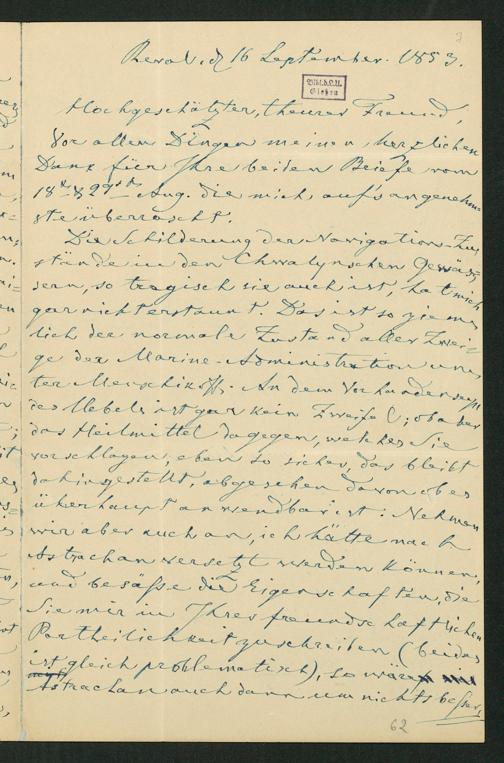 3
Reval, d 16 September. 1853.
Bibl. d. U.
Gießen
Hochgeschätzter, theurer Freund,
Vor allen Dingen meinen herzlichen
Dank für Ihre beiden Briefe vom
18t & 29st Aug. die mich auf's angenehm-
ste überrascht.
Die Schilderung der Navigation-Zu-
stände in den Chwalynschen Gewäs-
sern, so tragisch sie auch ist, hat mich
gar nicht erstaunt. Das ist so ziem-
lich der normale Zustand aller Zwei-
ge der Marine-Administration un-
ter Menschikoff. An dem Vorhandenseyn
des Uebels ist gar kein Zweifel; ob aber
das Heilmittel dagegen, welches Sie
vorschlagen, eben so sicher, das bleibt
dahingestellt, abgesehen davon ob es
überhaupt anwendbar ist: Nehmen
wir aber auch an, ich hätte nach
Astrachan versetzt werden können,
und besäße die Eigenschaften, die
Sie mir in Ihrer freundschaftlichen
Partheilichkeit zuschreiben (beides
ist gleich problematisch), so wäre
Astrachan auch dann um nichts besser,
62